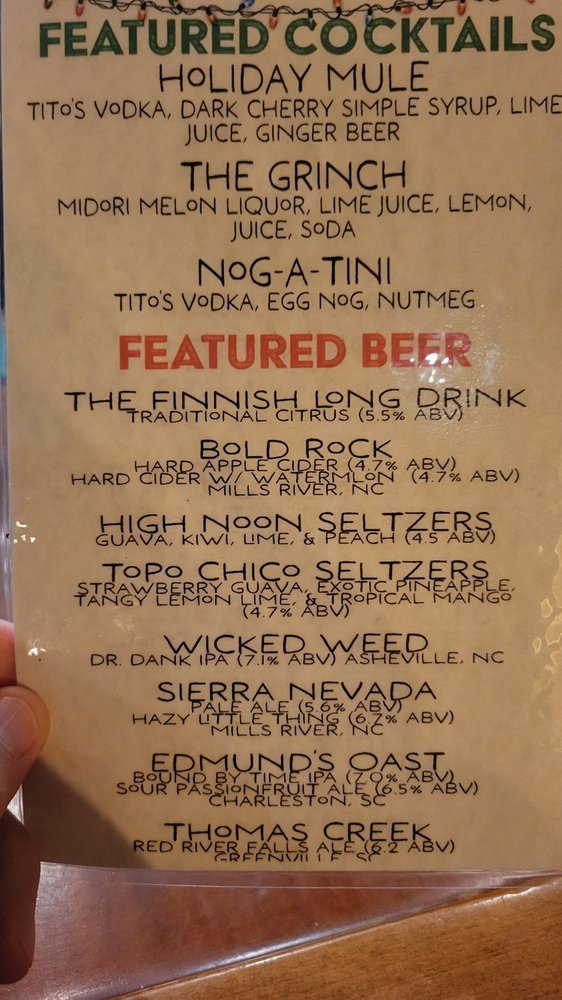 FEATURED COCKTAILS
HOLIDAY MULE
TITO'S VODKA, DARK CHERRY SIMPLE SYRUP, LIME
JUICE, GINGER BEER
THE GRINCH
MIDORI MELON LIQUOR, LIME JUICE, LEMON,
JUICE, SODA
NOG-A-TINI
TITO'S VODKA, EGG NOG, NUTMEG
FEATURED BEER
THE FINNISH LONG DRINK
TRADITIONAL CITRUS (5.5% ABV)
BOLD ROCK
HARD APPLE CIDER (4.7% ABV)
HARD CIDER W/ WATERMLON (4.7% ABV)
MILLS RIVER, NC
HIGH NOON SELTZERS
GUAVA, KIWI, LIME, & PEACH (4.5 ABV)
TOPO CHICO SELTZERS
STRAWBERRY GUAVA, EXOTIC PINEAPPLE,
TANGY LEMON LIME, & TROPICAL MANGO
(4.7% ABV)
WICKED WEED
DR. DANK IPA (7.1% ABV) ASHEVILLE, NC
SIERRA NEVADA
PALE ALE (5.6% ABV)
HAZY LITTLE THING (6.7% ABV)
MILLS RIVER, NC
EDMUND'S OAST
BOUND BY TIME IPA (7.0% ABV)
SOUR PASSIONFRUIT ALE (6.5% ABV)
CHARLESTON, SC
THOMAS CREEK
RED RIVER FALLS ALE (6.2 ABV)
GREENVILLE, SC